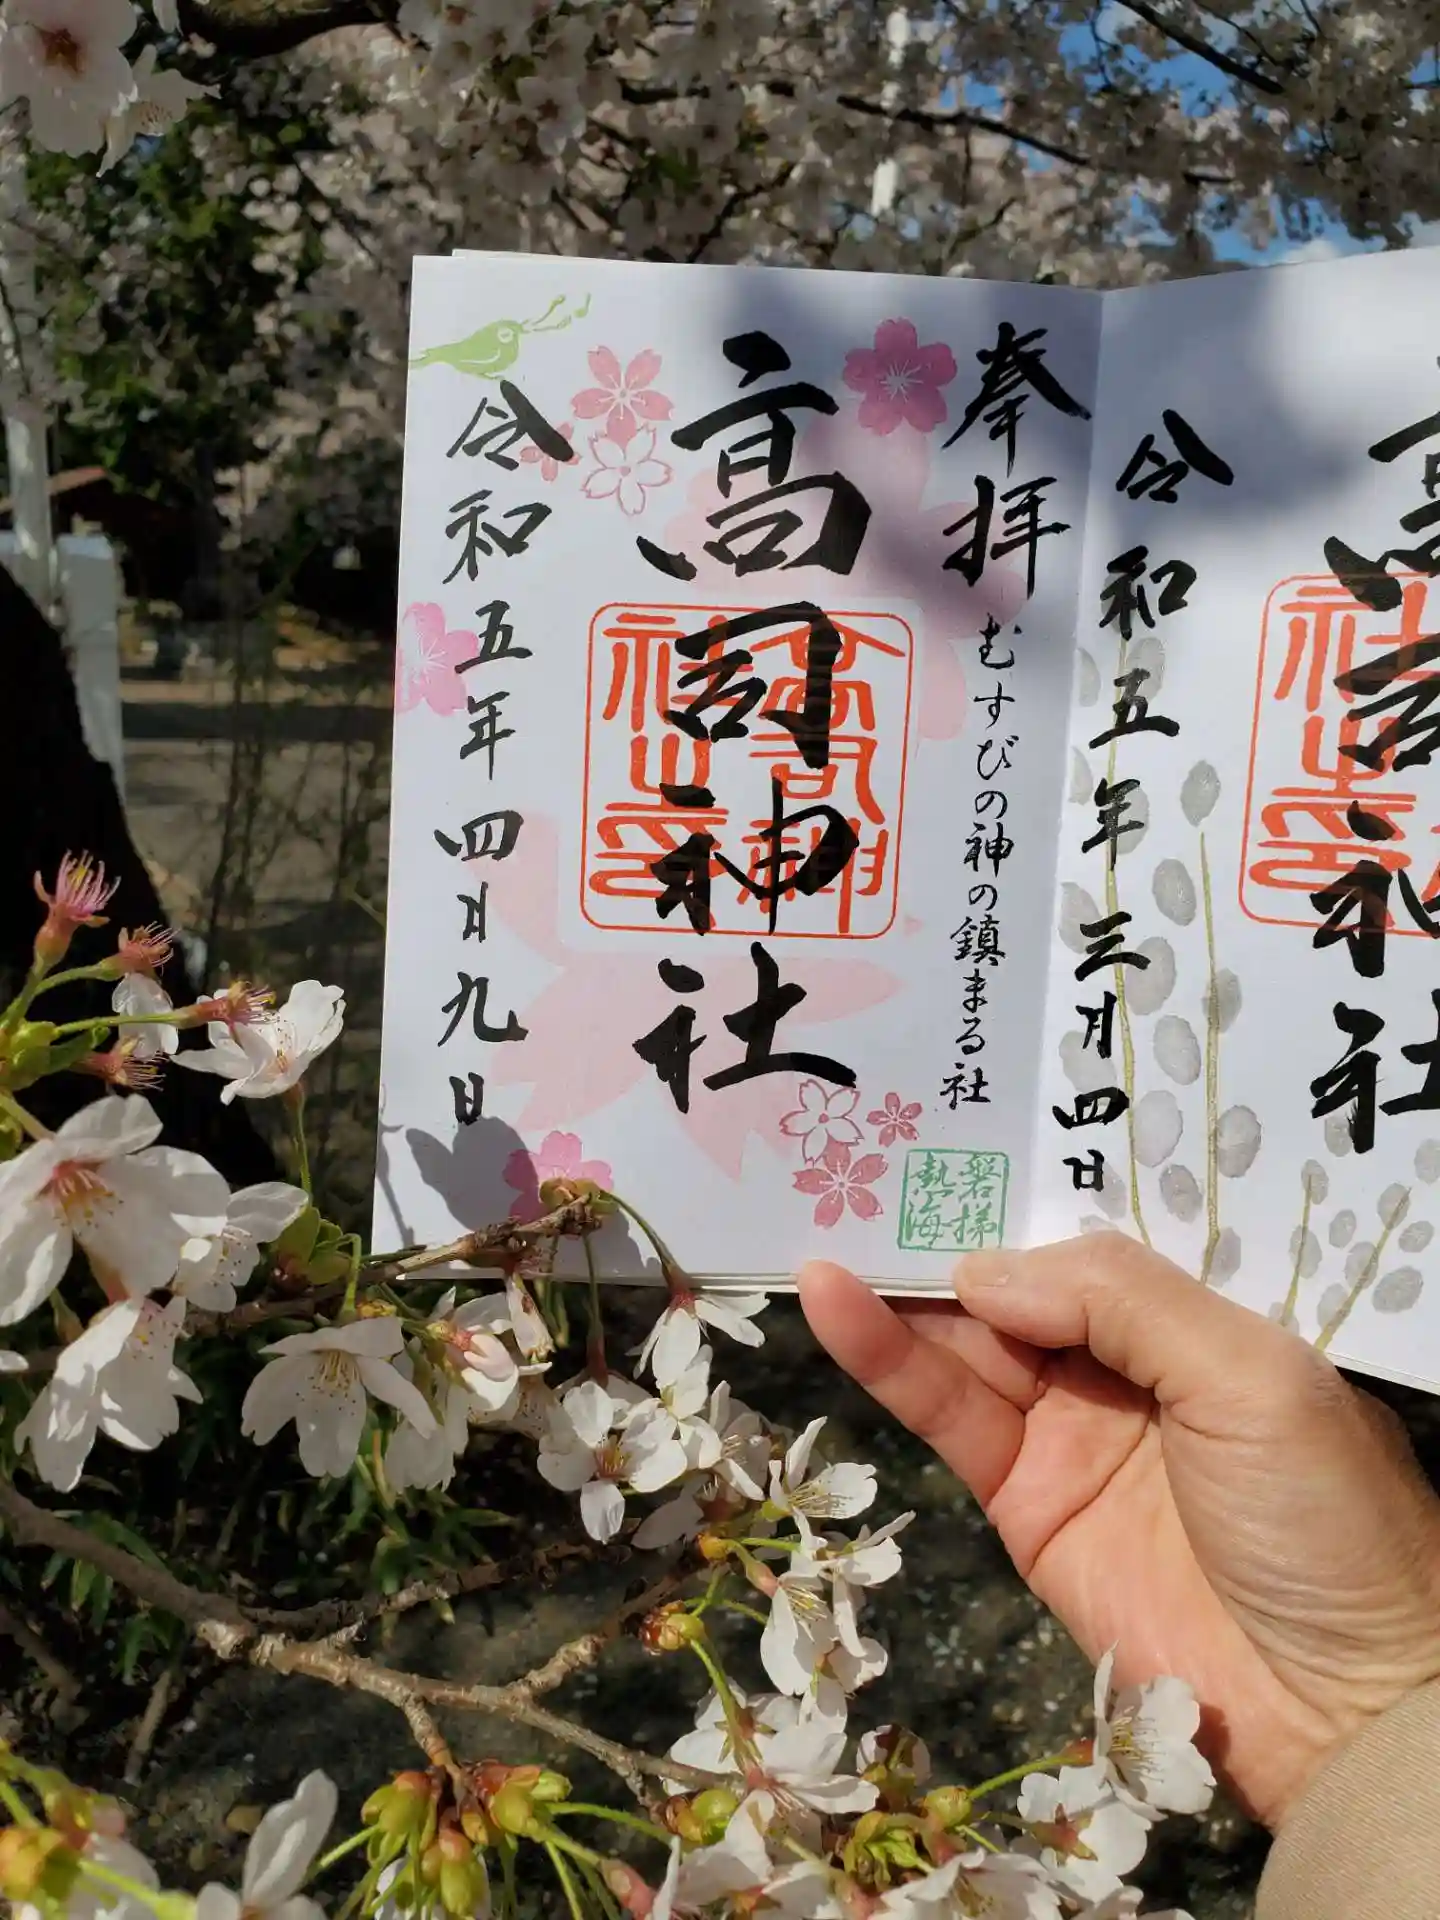 奉拝
むすびの神の鎮まる社
高司神社
高司神社之印
令和五年四月九日
磐梯熱海
令和五年三月四日
高司神社